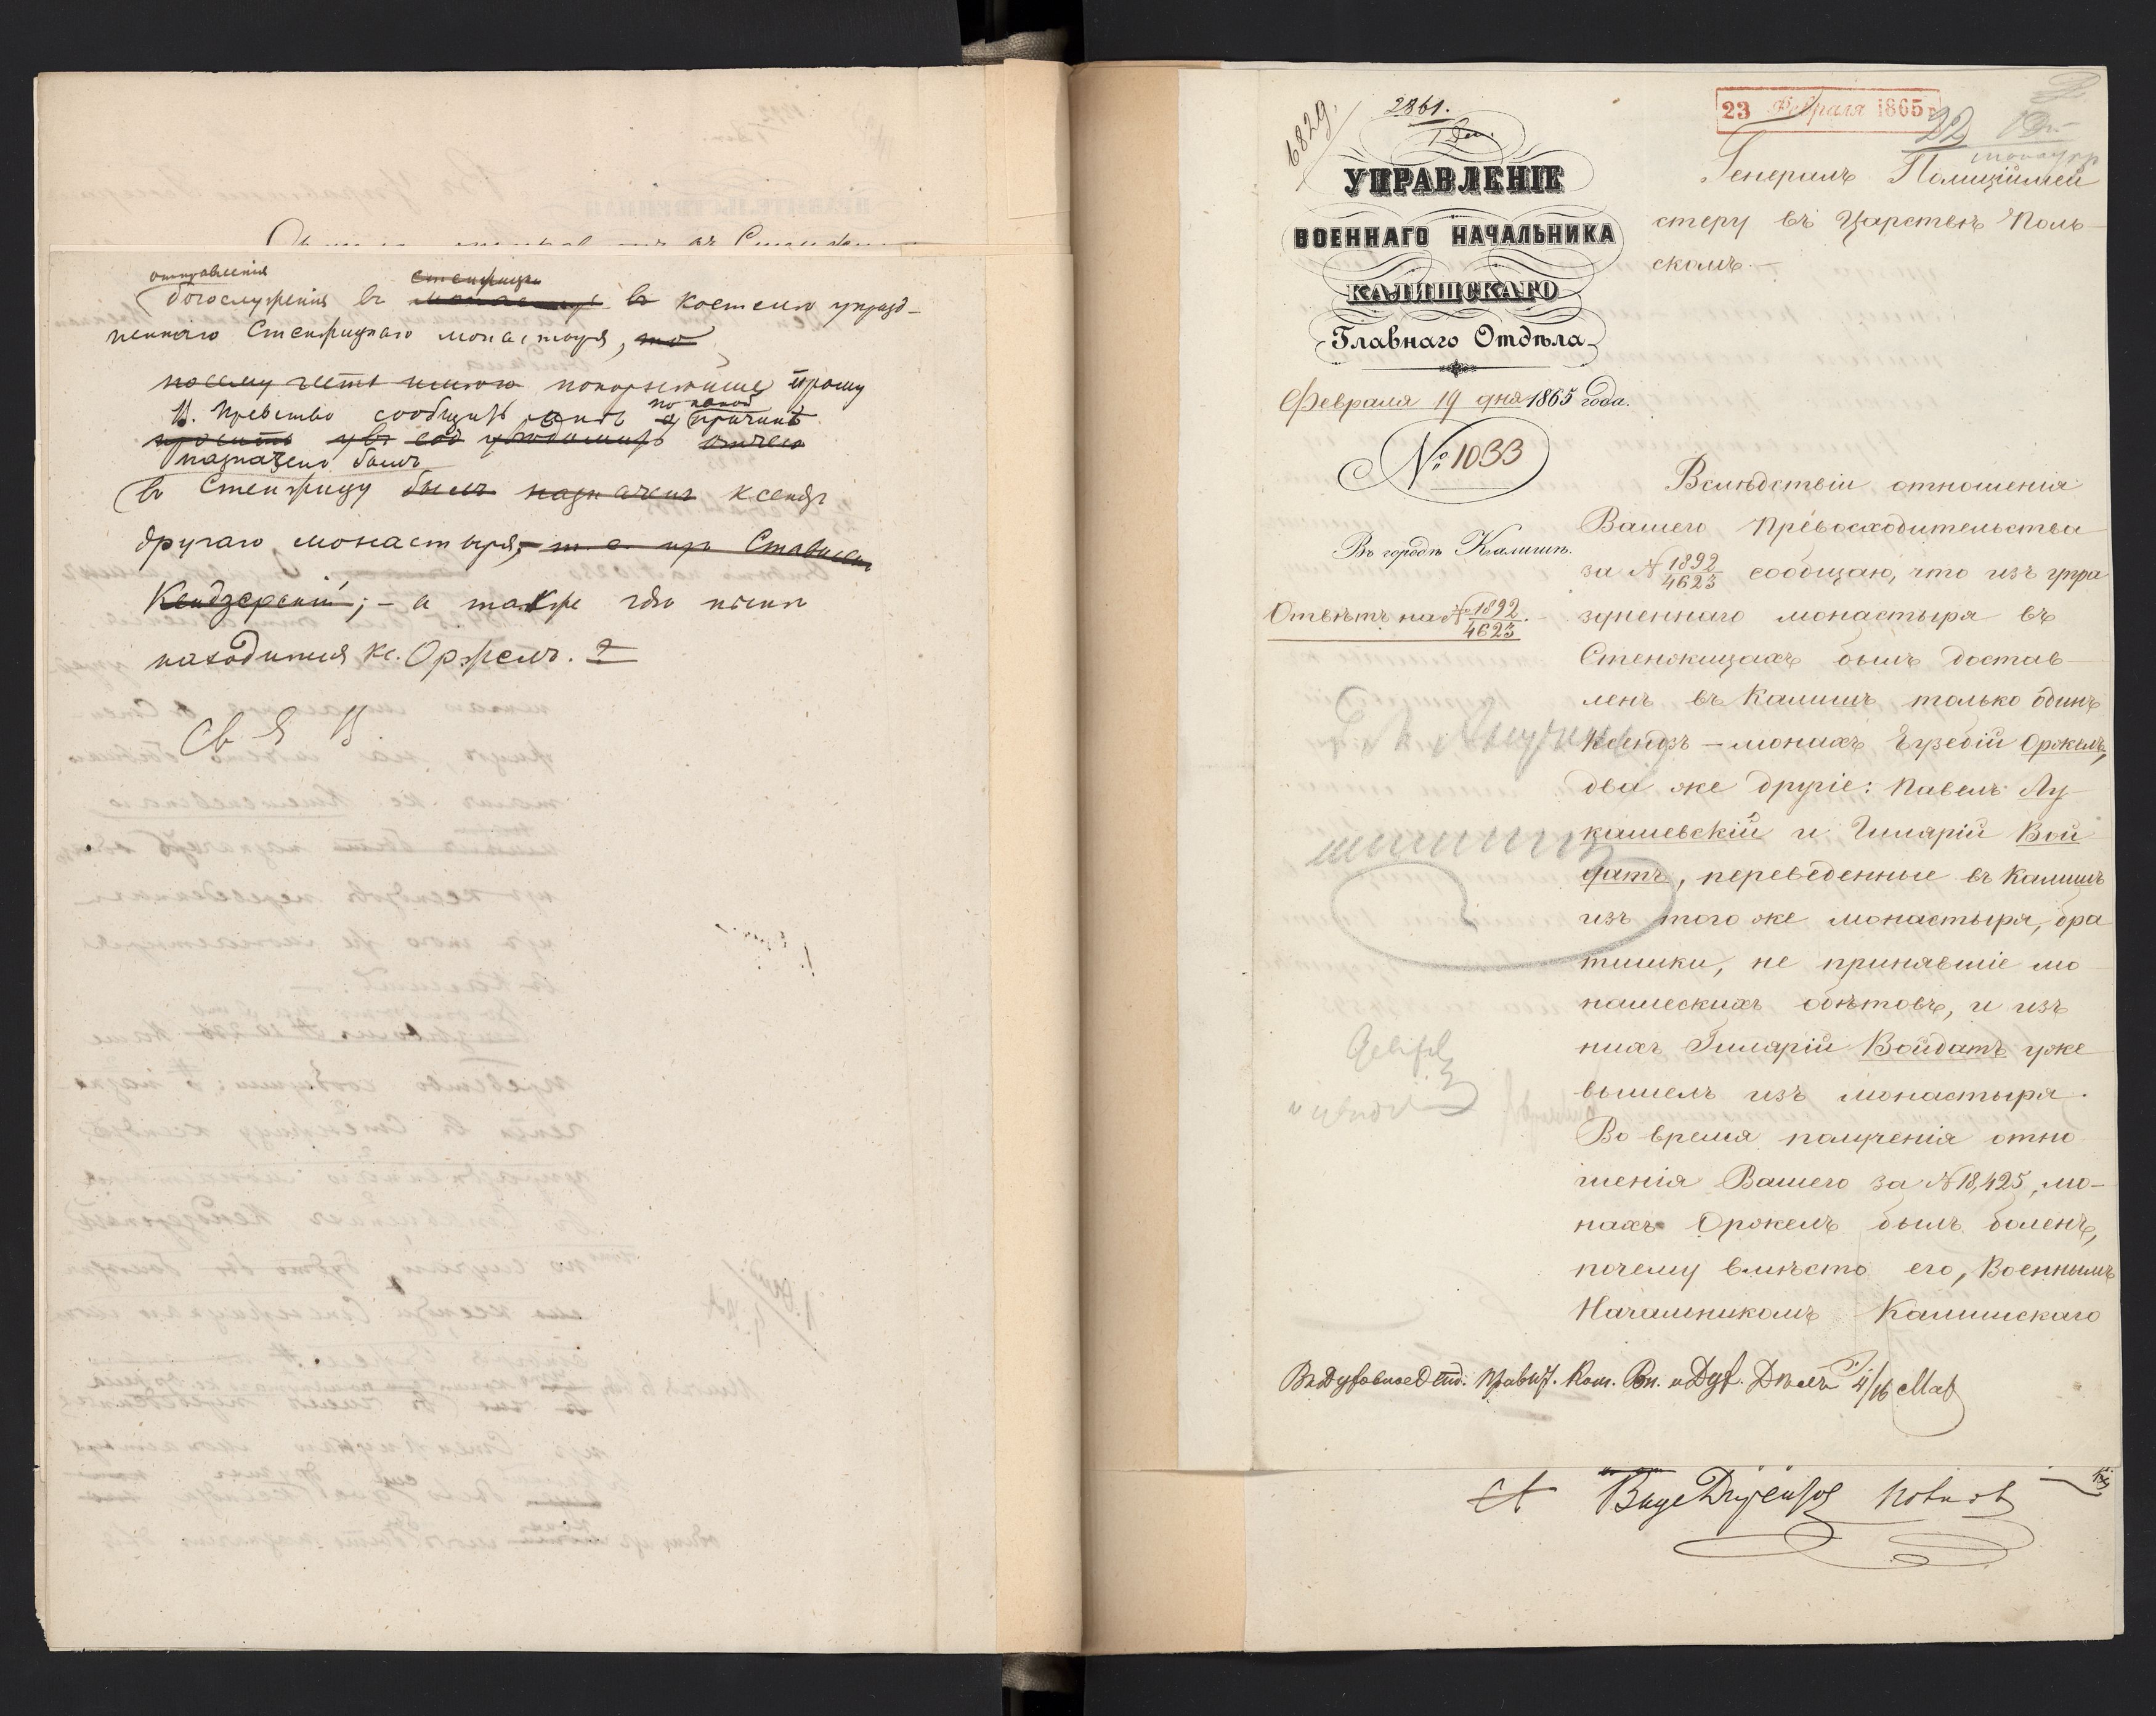 отправленія
богослуженія въ Стенжицы въ костелѣ упразд-
неннаго Стенжицкаго монастыря, то
посему честь имѣю покорнѣйше прошу
В. Превство сообщить мнѣ по какой причинѣ
просить увѣ
назначенъ былъ
въ Стенжицу былъ назначенъ ксендзъ
другаго монастыря, т. е. изъ Стависки
Кендзерскій; – а также гдѣ нынѣ
находится Кс. Оржелъ. ?
2861.
6829
УПРАВЛЕНІЕ
ВОЕННАГО НАЧАЛЬНИКА
КАЛИШСКАГО
Главнаго Отдѣла
Февраля 19 дня 1865 года.
№ 1033
Въ городѣ Калишѣ.
Отвѣтъ на № 1892/4623.
23 Февраля 1865 г.
22
Генералъ Полиціймей
стеру въ Царствѣ Поль-
скомъ. –
Вслѣдствіи отношенія
Вашего Превосходительства
за № 1892/4623 сообщаю, что изъ упра
здненнаго монастыря въ
Стенжицахъ былъ достав-
ленъ въ Калишъ только одинъ
Ксендзъ – монахъ Eузебій Оржелъ,
два же другіе: Павелъ Лу-
кашевскій и Гиларій Вой
датъ, переведенные въ Калишъ
изъ того же монастыря, бра
тишки, не принявшіе мо
нашескихъ обѣтовъ, и изъ
нихъ Гиларій Войдатъ уже
вышелъ изъ монастыря.
Во время полученія отно
шенія Вашего за № 18,425, мо-
нахъ Оржелъ былъ боленъ,
почему вмѣсто его, Военнымъ
Начальникомъ Калишскаго
Въ Духовное Отд. Правит. Ком. Вн. и Дух. Дѣлъ 4/16 Мар
Вице Директоръ